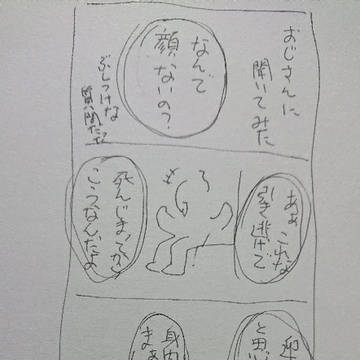 おじさんに
聞いてみた
なんで
顔ないの？
ぶしつけな
質問だな
あぁ これな
引き逃げで
死んじまってから
こうなんだよ
と思
身内
まあ